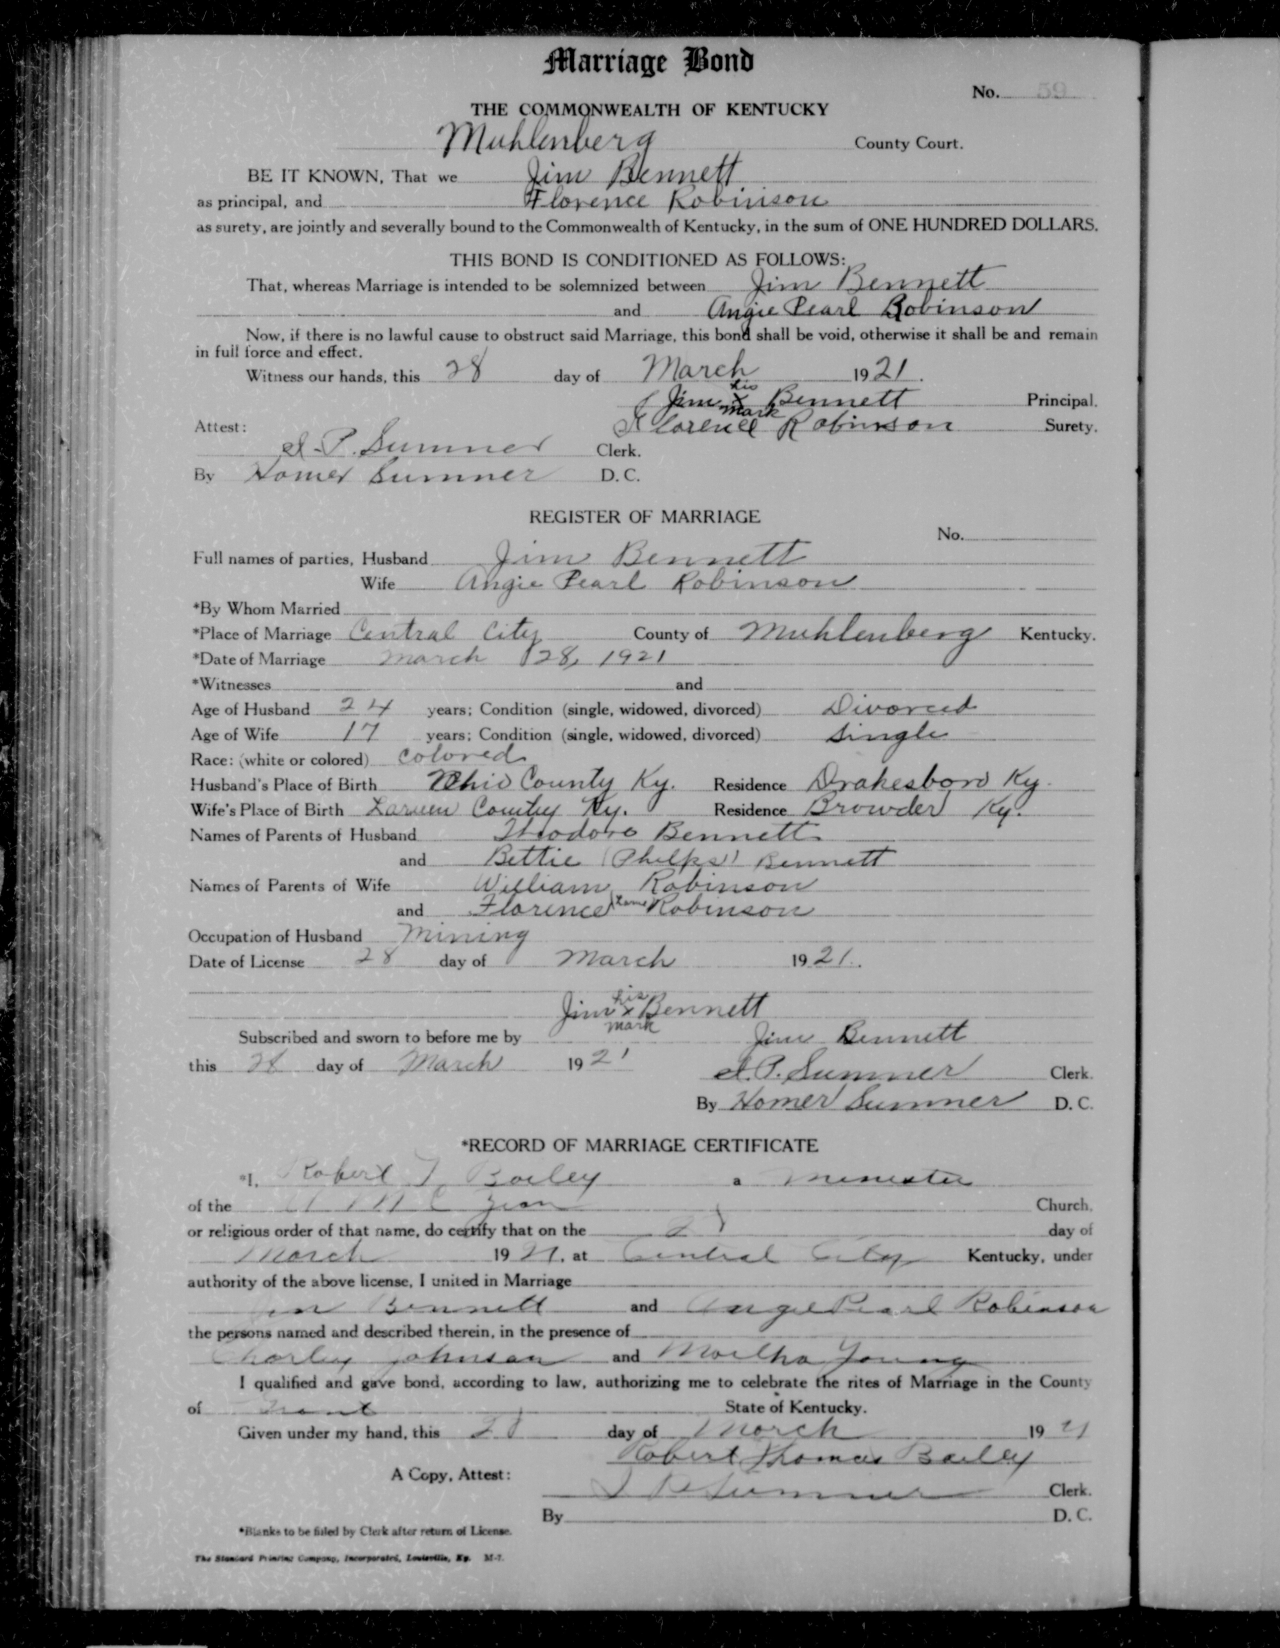 Marriage Bond
No. 59
THE COMMONWEALTH OF KENTUCKY
Muhlenberg County Court.
BE IT KNOWN, That we Jim Bennett
as principal, and Florence Robinson
as surety, are jointly and severally bound to the Commonwealth of Kentucky, in the sum of ONE HUNDRED DOLLARS.
THIS BOND IS CONDITIONED AS FOLLOWS:
That, whereas Marriage is intended to be solemnized between Jim Bennett
and Angie Pearl Robinson
Now, if there is no lawful cause to obstruct said Marriage, this bond shall be void, otherwise it shall be and remain
in full force and effect.
Witness our hands, this 28 day of March 1921.
Jim his x mark Bennett Principal.
Attest: Florence Robinson Surety.
Sumner Clerk.
By Homer Sumner D. C.
REGISTER OF MARRIAGE
No.
Full names of parties, Husband Jim Bennett
Wife Angie Pearl Robinson
*By Whom Married
*Place of Marriage Central City County of Muhlenberg Kentucky.
*Date of Marriage March 28, 1921
*Witnesses and
Age of Husband 24 years; Condition (single, widowed, divorced) Divorced
Age of Wife 17 years; Condition (single, widowed, divorced) Single
Race: (white or colored) Colored
Husband's Place of Birth Ohio County Ky. Residence Drakesboro Ky.
Wife's Place of Birth County Ky. Residence Browder Ky.
Names of Parents of Husband Theodore Bennett
and Bettie (Phelps) Bennett
Names of Parents of Wife William Robinson
and Florence Robinson
Occupation of Husband Mining
Date of License 28 day of March 1921.
Jim his x mark Bennett
Subscribed and sworn to before me by Jim Bennett
this 28 day of March 1921 Sumner Clerk.
By Homer Sumner D. C.
*RECORD OF MARRIAGE CERTIFICATE
*I, Robert T. Bailey a Minister
of the A M E Zion Church,
or religious order of that name, do certify that on the 28 day of
March 1921, at Central City Kentucky, under
authority of the above license, I united in Marriage
Jim Bennett and Angie Pearl Robinson
the persons named and described therein, in the presence of
Charley Johnson and Martha Young
I qualified and gave bond, according to law, authorizing me to celebrate the rites of Marriage in the County
of State of Kentucky.
Given under my hand, this 28 day of March 1921
Robert Thomas Bailey
A Copy, Attest:
Sumner Clerk.
By D. C.
*Blanks to be filled by Clerk after return of License.
The Standard Printing Company, Incorporated, Louisville, Ky. M-1.